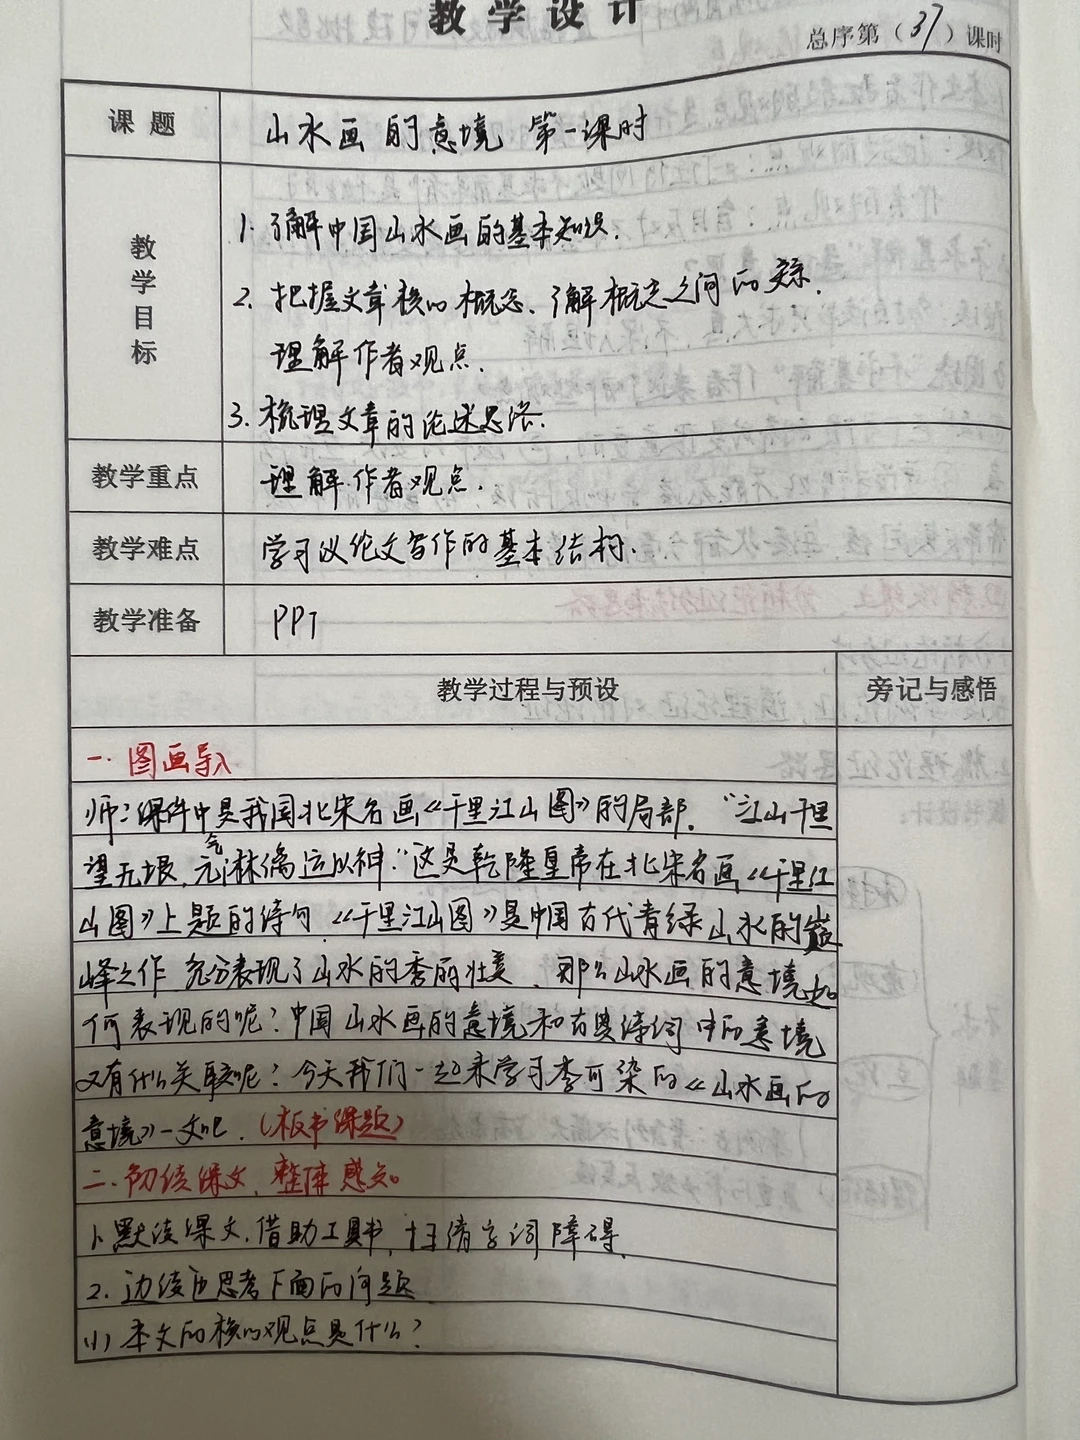 教学设计
总序第（37）课时
课题
山水画的意境 第一课时
教学目标
1. 了解中国山水画的基本知识.
2. 把握文章核心概念、了解概念之间的关系.
理解作者观点.
3. 梳理文章的论述思路.
教学重点
理解作者观点.
教学难点
学习议论文写作的基本结构.
教学准备
PPT
教学过程与预设
旁记与感悟
一. 图画导入
师：课件中是我国北宋名画《千里江山图》的局部. “江山千里
望无垠，元气淋漓运以神.”这是乾隆皇帝在北宋名画《千里江
山图》上题的诗句.《千里江山图》是中国古代青绿山水的巅
峰之作 充分表现了山水的秀丽壮美. 那么山水画的意境如
何表现的呢？中国山水画的意境和古典诗词中的意境
又有什么关联呢？今天我们一起来学习李可染的《山水画的
意境》一文吧.（板书课题）
二. 初读课文，整体感知。
1. 默读课文，借助工具书，扫清字词障碍.
2. 边读边思考下面的问题
(1) 本文的核心观点是什么？